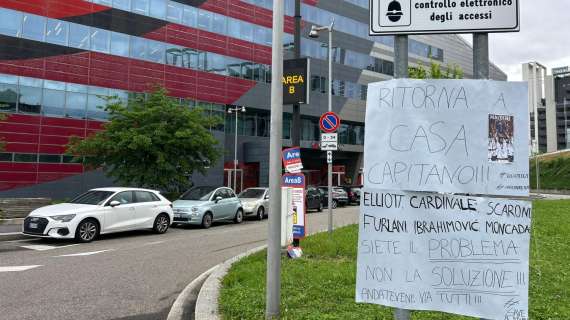 controllo elettronico
degli accessi
AREA
B
0 - 24
RITORNA A
CASA
CAPITANO!!!
ELLIOTT, CARDINALE, SCARONI
FURLANI IBRAHIMOVIĆ, MONCADA
SIETE IL PROBLEMA
NON LA SOLUZIONE!!!
ANDATEVENE VIA TUTTI!!!